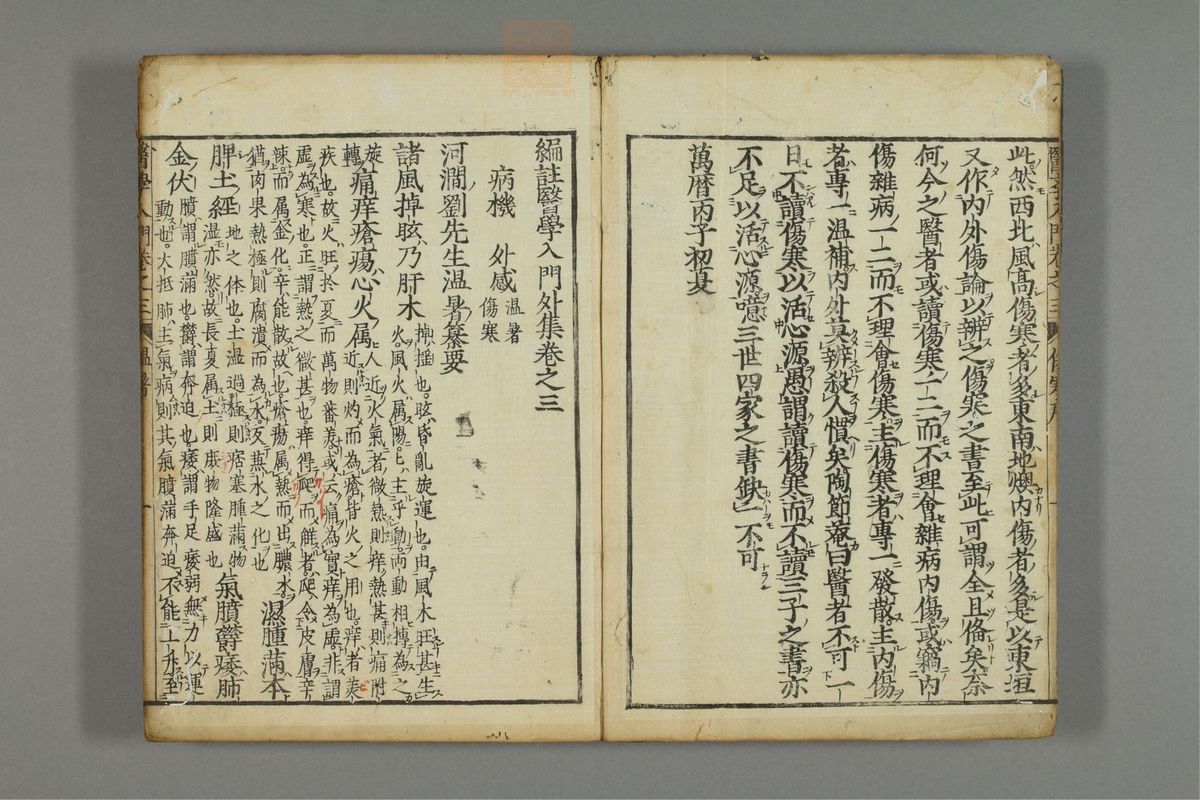 此然西北風高傷寒者多東南地燠內傷者多是以東垣
又作內外傷論以辨之傷寒之書至此可謂全且俻矣奈
何今之醫者或讀傷寒一二而不理會雜病內傷或竊內
傷雜病一二而不理會傷寒主傷寒者專一發散主內傷
者專一溫補內外眞辨殺人慣矣陶節菴曰醫者不可一
日不讀傷寒以活心源愚謂讀傷寒而不讀三子之書亦
不足以活心源噫三世四家之書缺一不可
萬曆丙子初夏
編註醫學入門外集卷之三
病機 外感 溫暑 傷寒
河澗劉先生溫暑纂要
諸風掉眩乃肝木 掉搖也眩昏亂旋運也由風木旺甚生
火風火屬陽陽主乎動兩動相摶為之
旋轉 痛痒瘡瘍心火屬 人近火氣者微熱則痒熱甚則痛附
近則灼而為瘡皆火之用也痒者美
疾也故火旺於夏而萬物蕃美或云痛為實痒為虛非謂
虛為寒也正謂熱之微甚也痒得爬而觧者爬令皮膚辛
辣而屬金化辛能散故也瘡瘍屬熱而出膿水 濕腫滿本
猶肉果熱極則腐潰而為水反蒸水之化也
脾土經 地之体也土濕過極則痞塞腫滿物
濕亦然故長夏屬土則庶物隆盛也 氣膹鬱痿肺
金伏 膹謂膹滿也鬱謂奔迫也痿謂手足痿弱無力以運
動也大抵肺主氣病則其氣膹滿奔迫不能上升至
醫學入門卷之三 傷寒序
醫學入門卷之三 溫暑 一